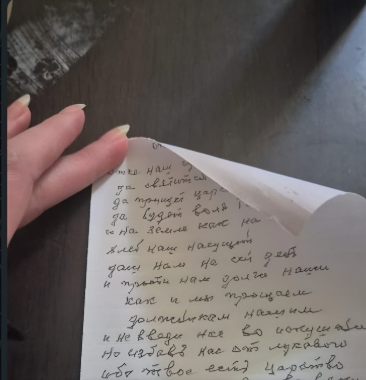 отче наш
да святится
да придет царс
да будет воля
и на земле как на
хлеб наш насущный
дай нам на сей день
и прости нам долги наши
как и мы прощаем
должникам нашим
и не введи нас во искушен
но избавь нас от лукавого
ибо твое есть царство